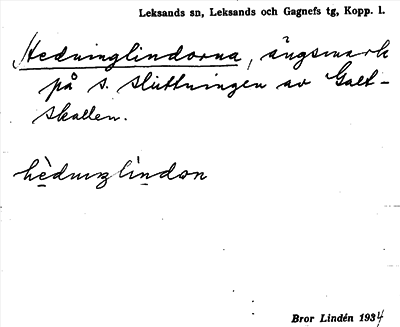 Leksands sn, Leksands och Gagnefs tg, Kopp. l.
Hedninglindorna, ängsmark
på s. sluttningen av Galt-
skallen.
hèdnıŋlìndɷn
Bror Lindén 1934